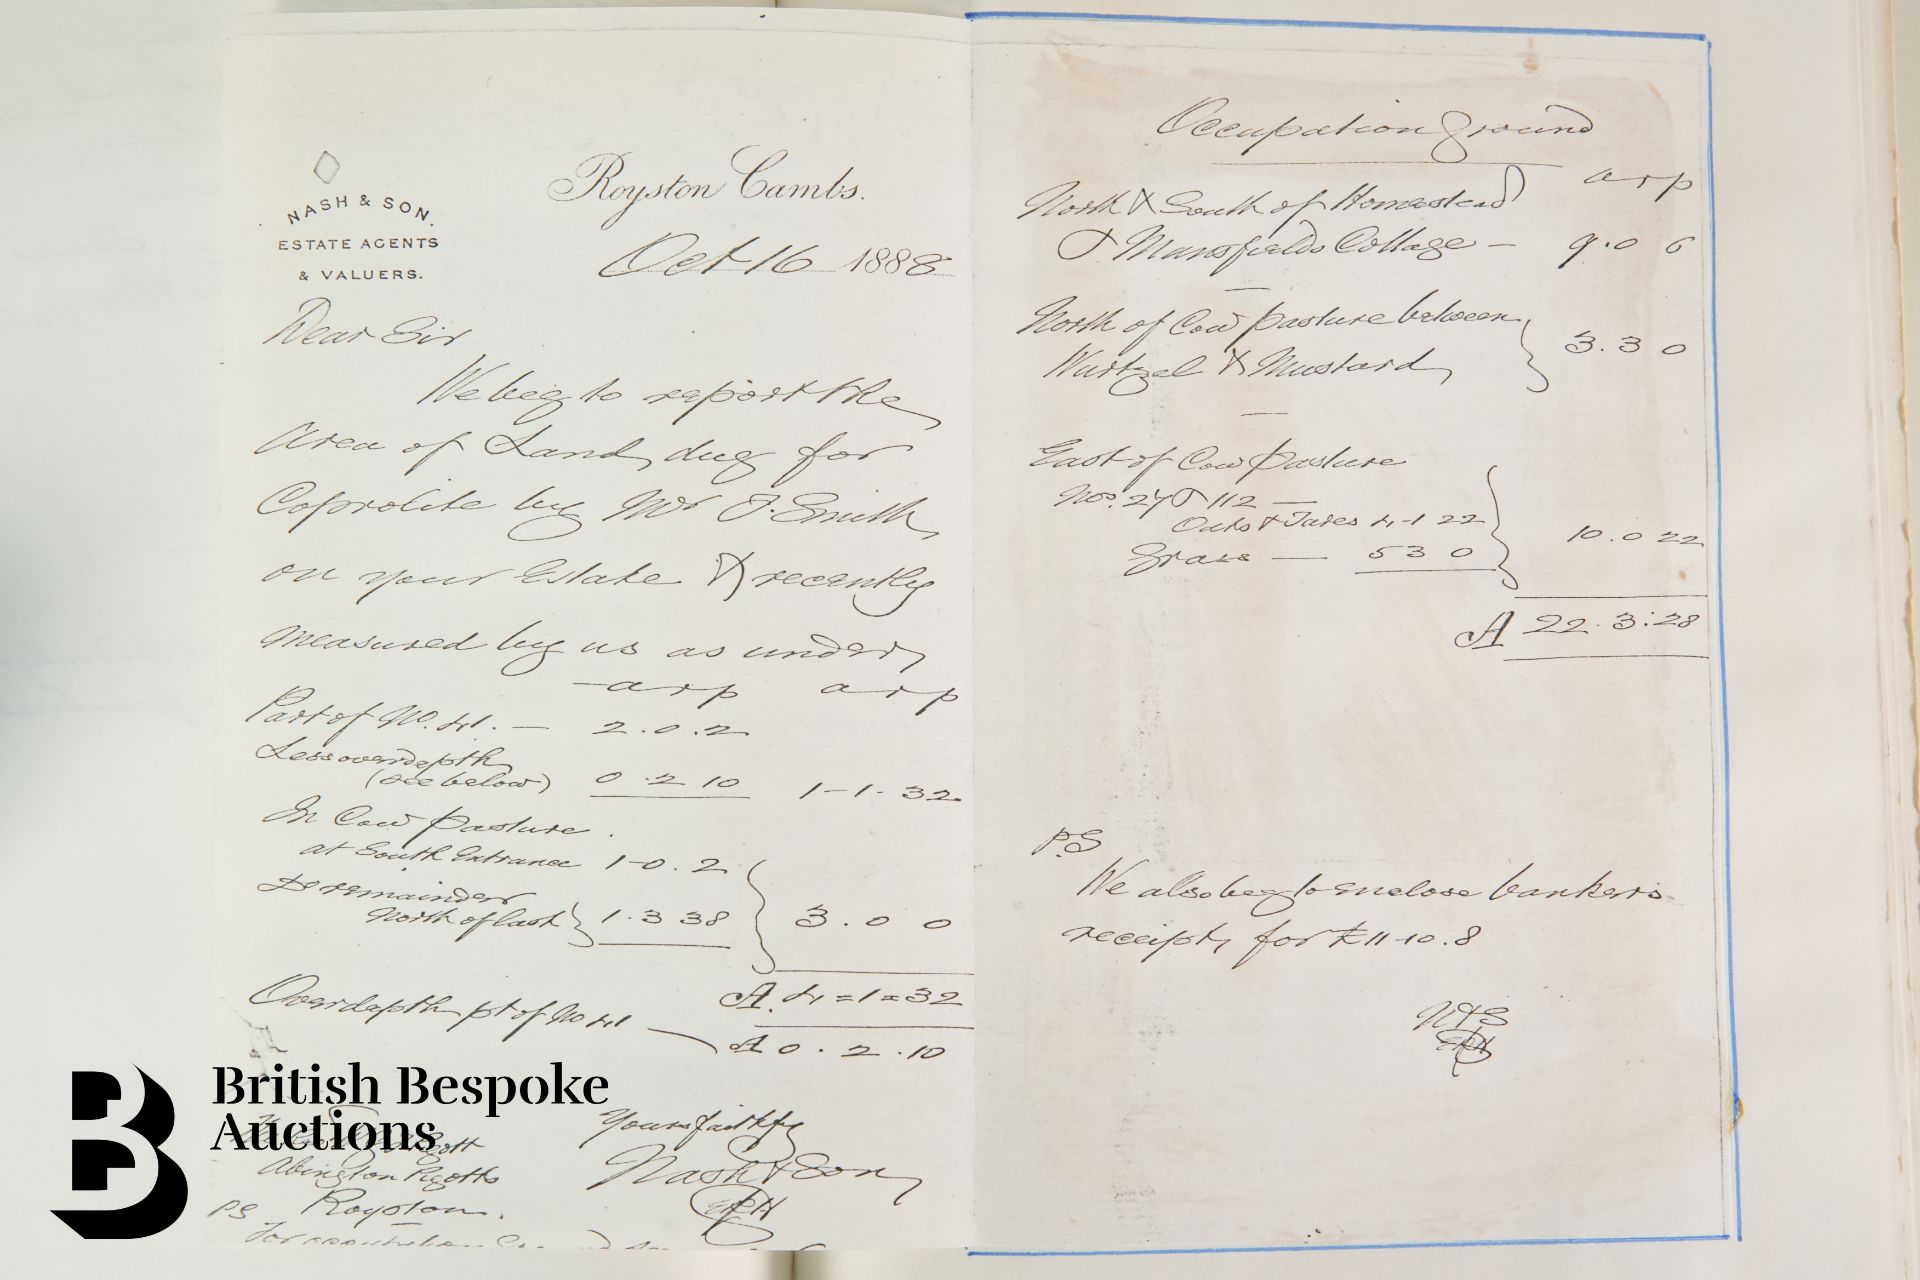 NASH & SON.
ESTATE AGENTS
& VALUERS.
Royston Cambs.
Oct 16 1888
Dear Sir
We beg to report the
area of Land dug for
Coprolite by Mr J. Smith
on your Estate & recently
measured by us as under
a r p a r p
Part of No. 41. — 2. 0. 2
Less overdepth
(see below) 0. 2 10 1-1-32
In Cow Pasture.
at South Entrance 1-0. 2
Do remainder
North of last } 1. 3 38 } 3. 0 0
A. 4=1=32
Overdepth pt of No 41 — A 0. 2. 10
Yours faithfy
Nash & Son
ERN
Pigott
Abington Pigotts
Royston.
PS
For occupation
Occupation Ground
a r p
North & South of Homestead
& Mansfields Cottage — 9. 0 6
North of Cow Pasture between
Wurtzel & Mustard } 3. 3 0
East of Cow Pasture
Nos. 27 & 112 —
Oats & Tares 4-1 22
Grass — 5 3 0 } 10. 0 22
A 22. 3: 28
P.S
We also beg to enclose bankers
receipt, for £11-10. 8
N & S
ERN
British Bespoke
Auctions